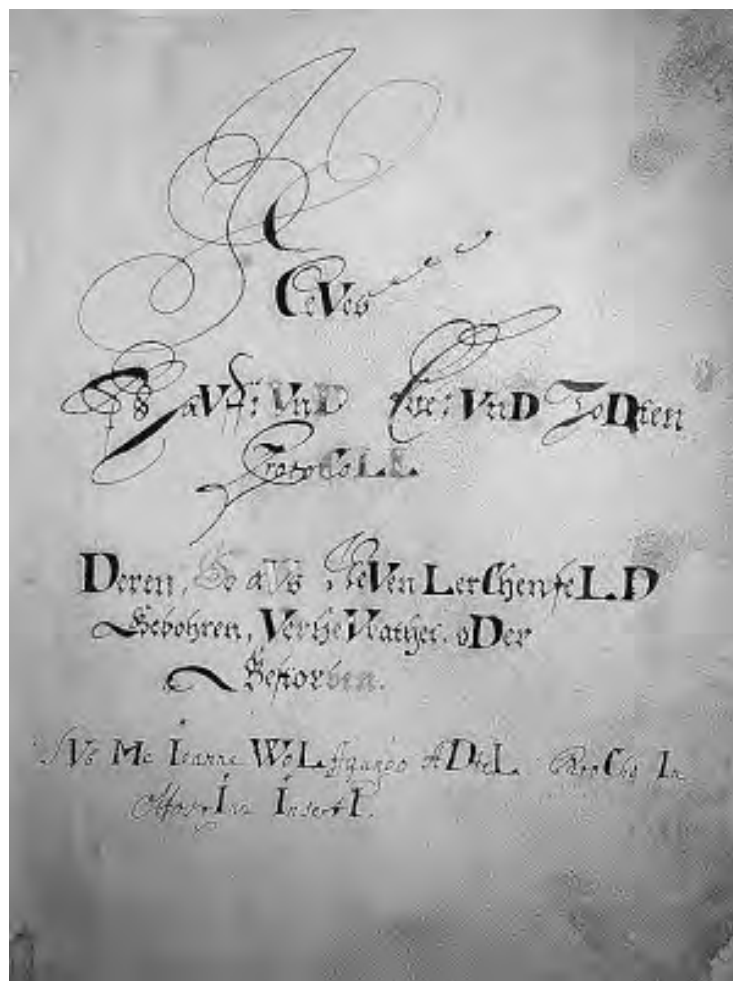 NeVes
TaVff: VnD Ehe: VnD ToDten
ProtoCoLL
Deren, So aVs NeVen LerChenfeLD
Gebohren, VerheVrathet. oDer
Gestorben.
SVb Me Ioanne WoLffgango ADteL ParoCho In
InsertI.